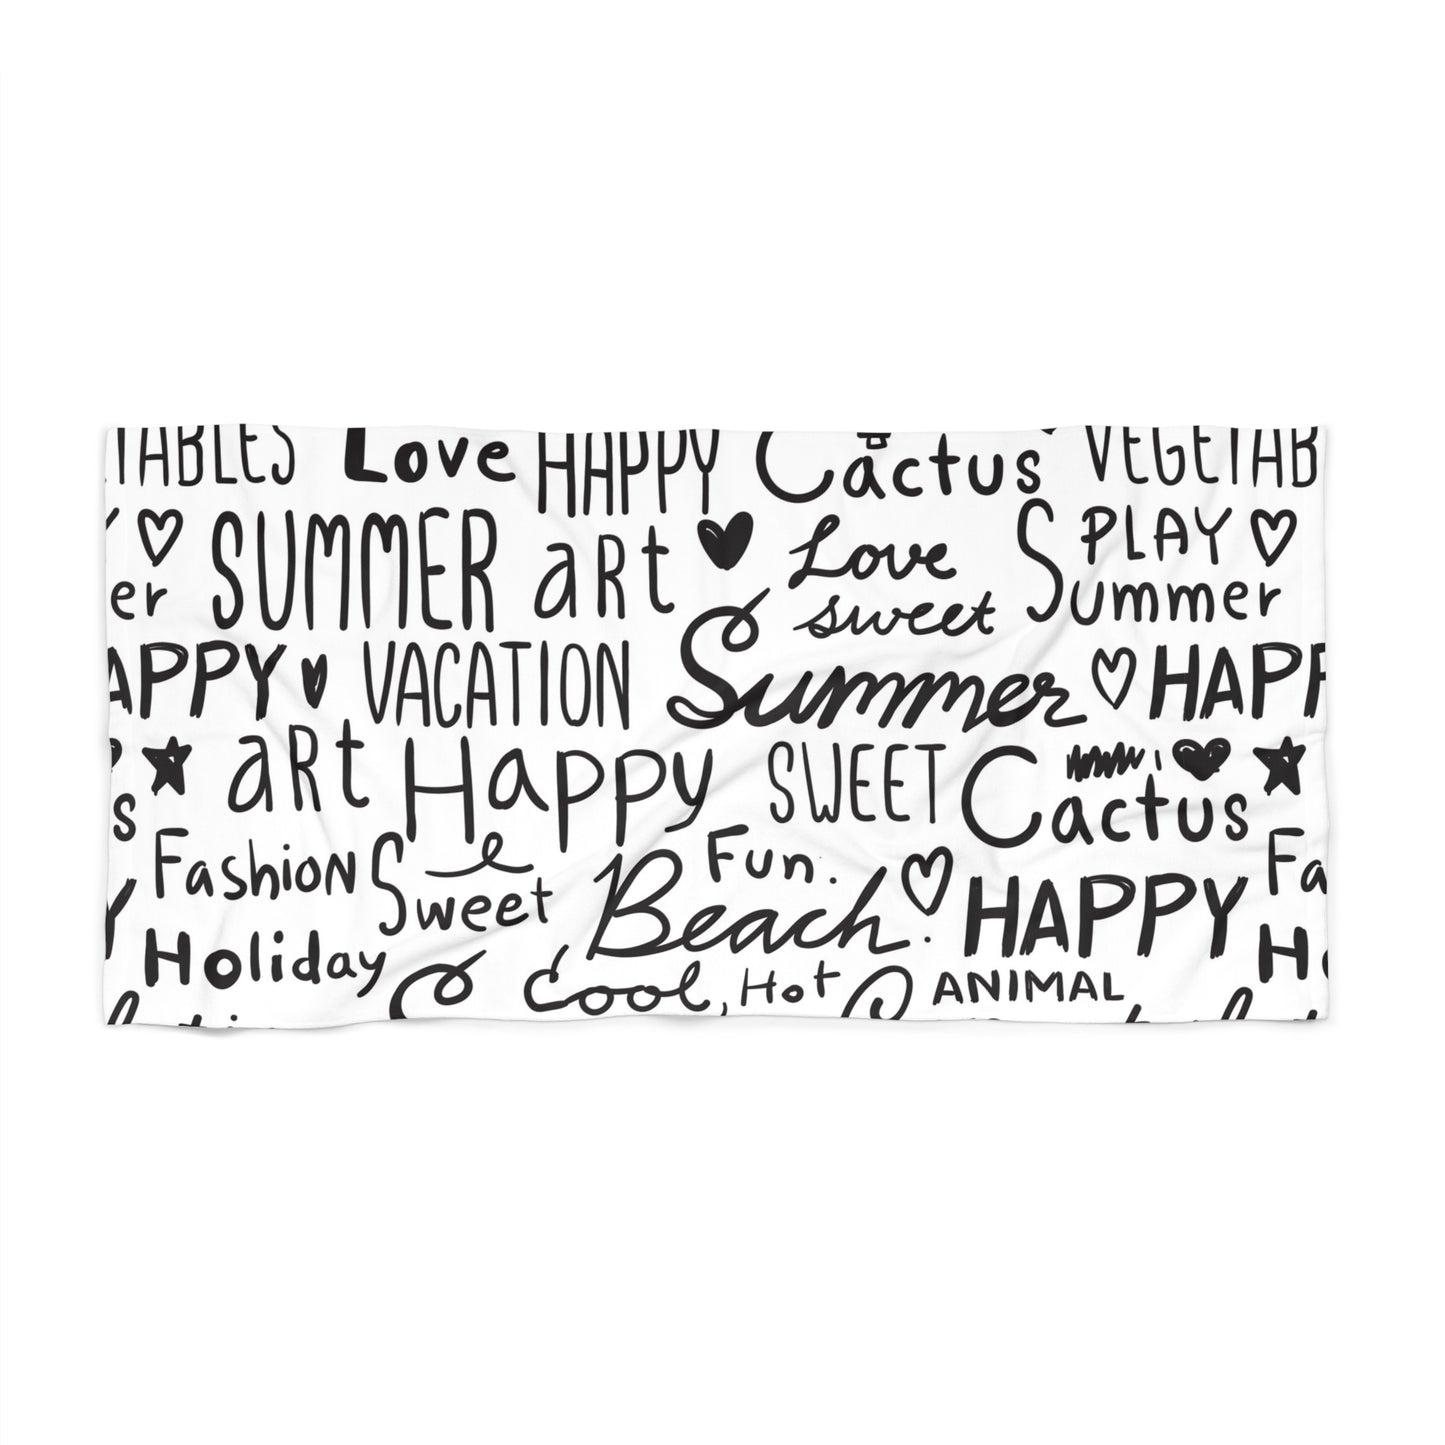 TABLES Love HAPPY Cactus VEGETAB
SUMMER art Love PLAY
er sweet Summer
APPY VACATION Summer HAPP
art Happy SWEET Cactus
s
Fashion Sweet Fun. Fa
Y Holiday Beach. HAPPY Ho
Cool, Hot ANIMAL